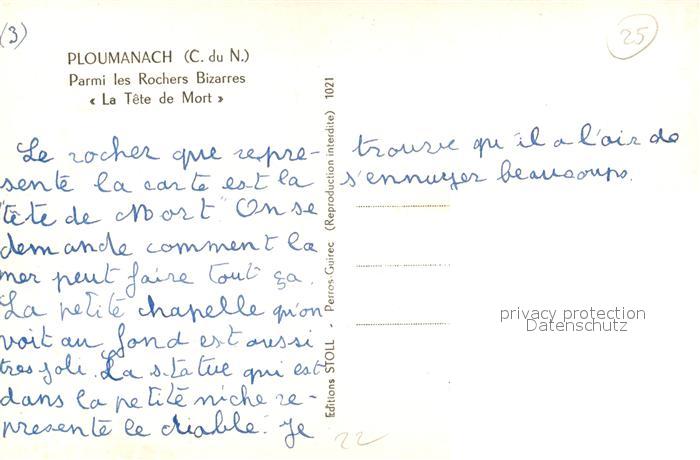 (3)
25
PLOUMANACH (C. du N.)
Parmi les Rochers Bizarres
« La Tête de Mort »
Le rocher que repre-
sente la carte est la
"tête de Mort" On se
demande comment la
mer peut faire tout ça.
La petite chapelle qu'on
voit au fond est aussi
tres joli. La statue qui est
dans la petite niche re-
presente le diable. Je
trouve qu'il a l'air de
s'ennuyer beaucoups.
Editions STOLL - Perros-Guirec (Reproduction interdite) 1021
privacy protection
Datenschutz
22